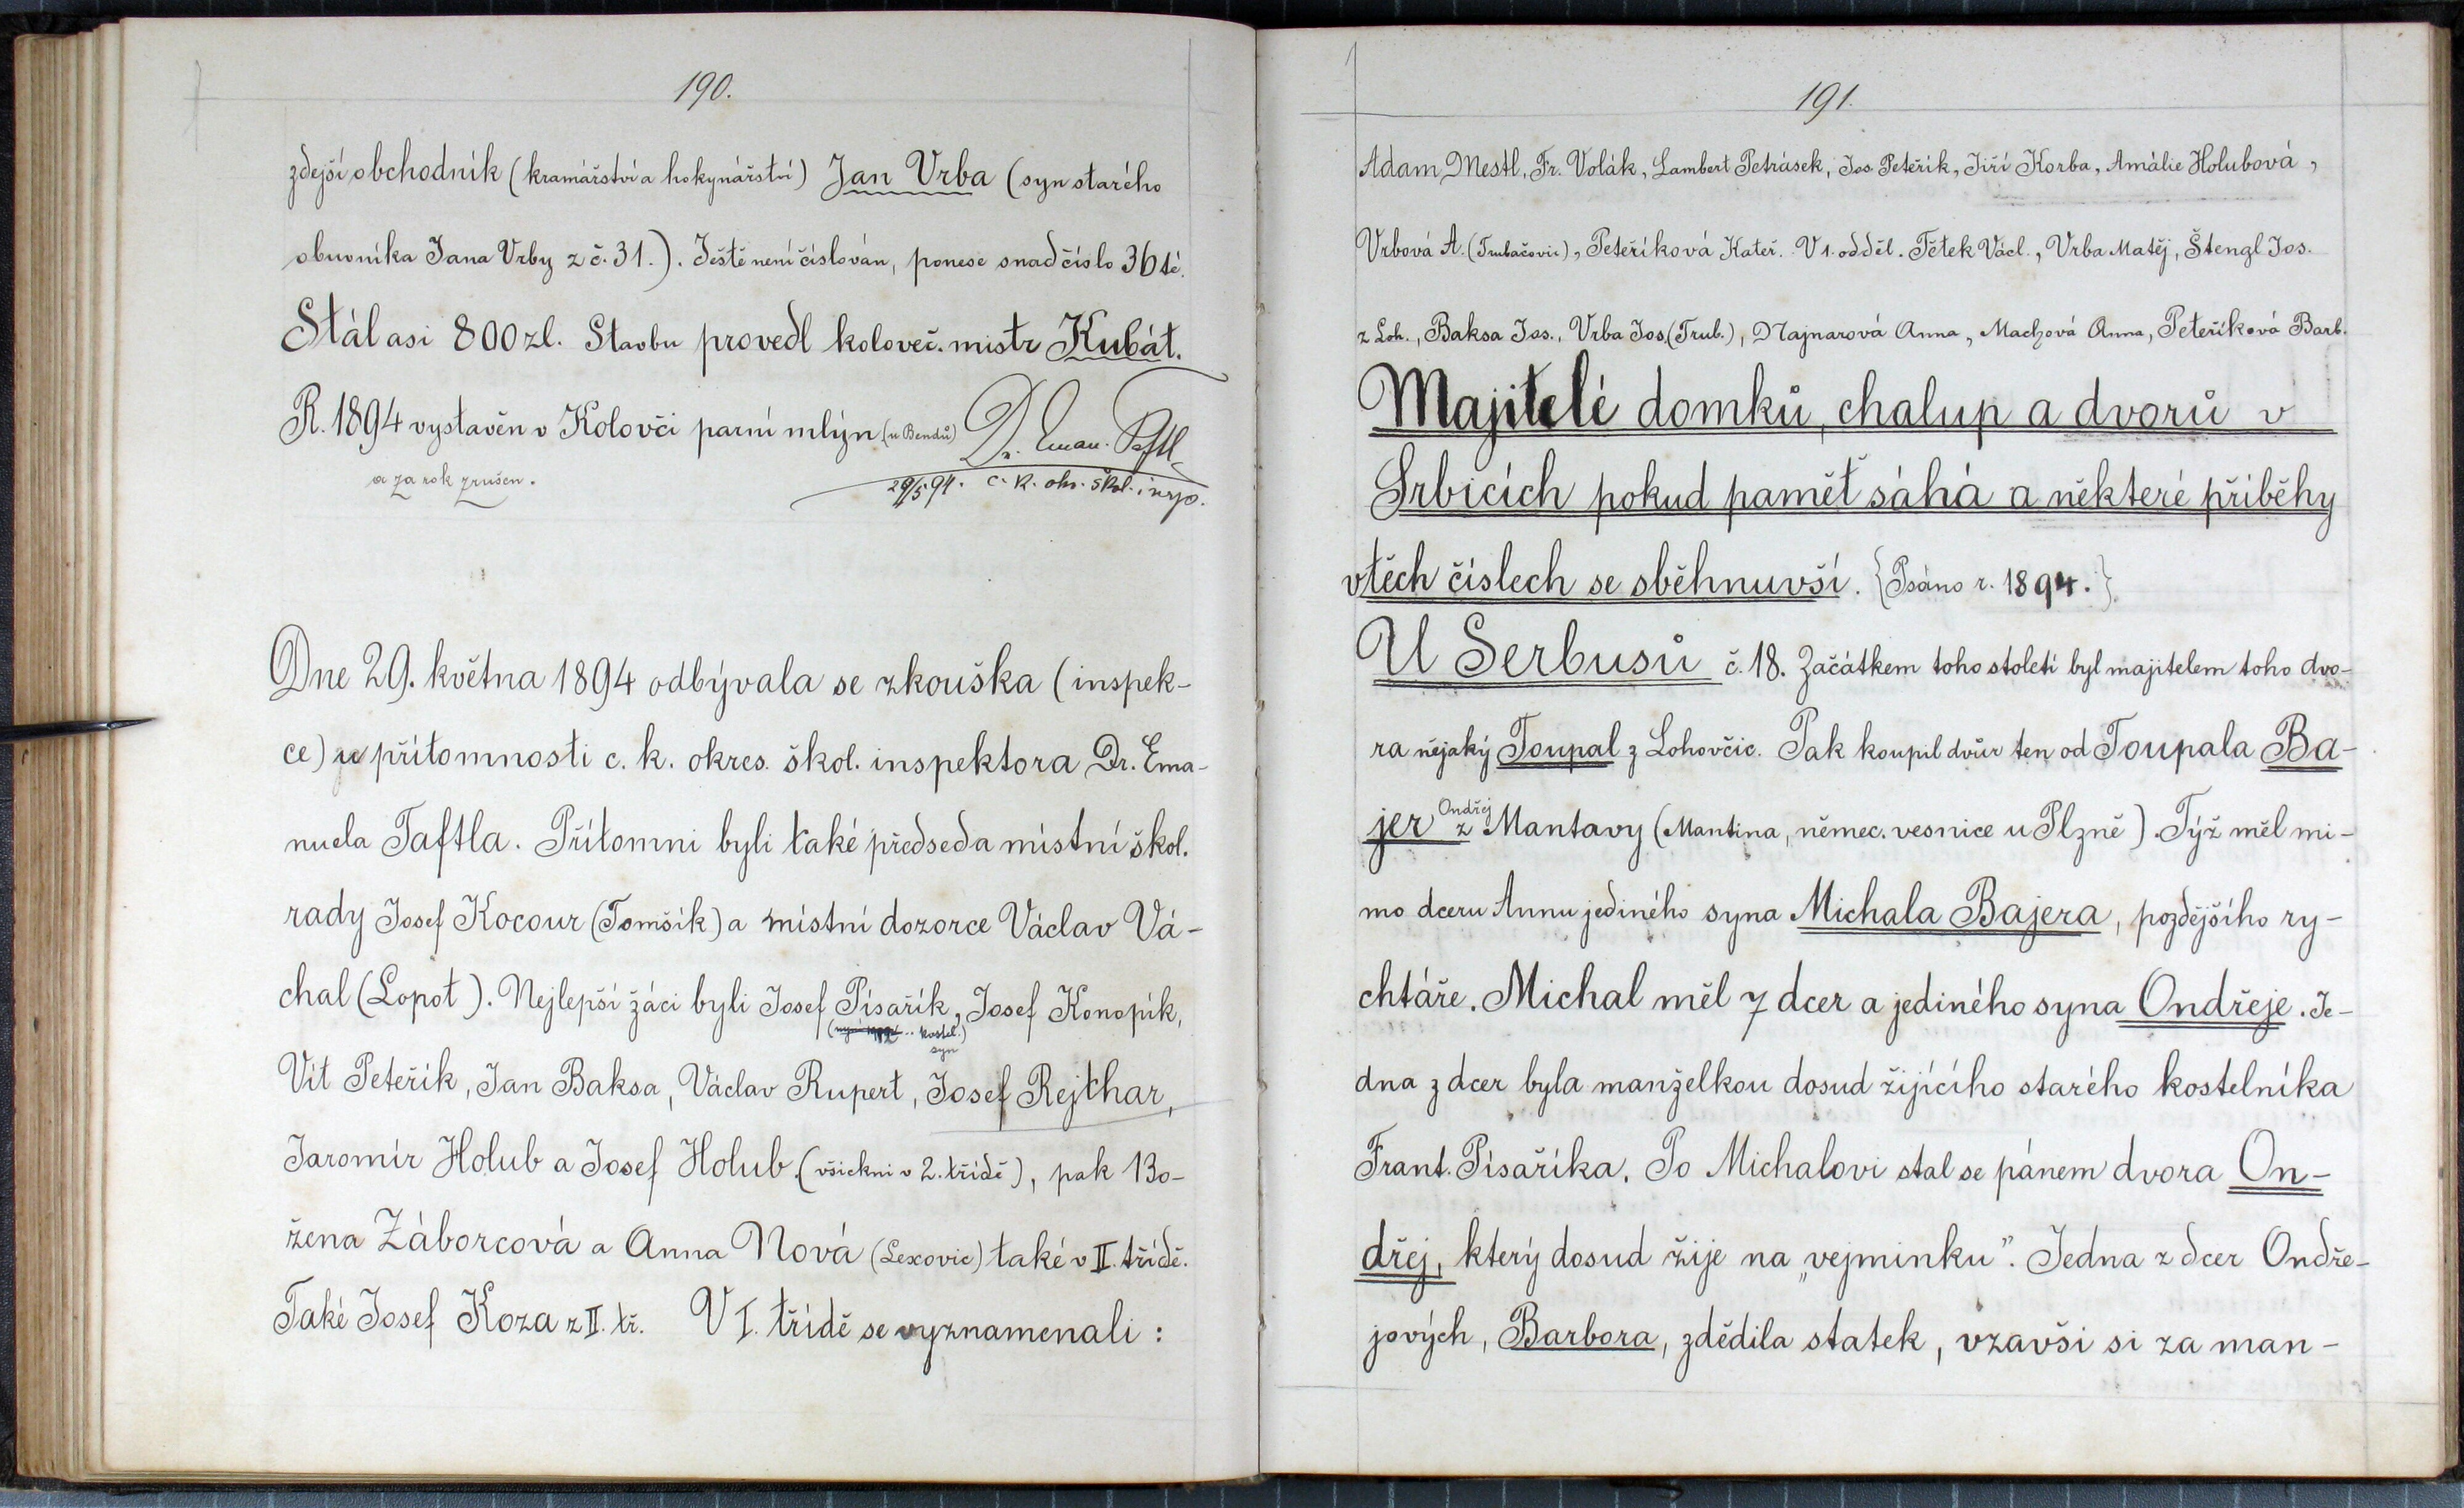 190.
zdejší obchodník (kramářství a hokynářství) Jan Vrba (syn starého
obuvníka Jana Vrby z č. 31.). Ještě není číslován, ponese snad číslo 36té.
Stál asi 800 zl. Stavbu provedl koloveč. mistr Kubát.
R. 1894 vystavěn v Kolovči parní mlýn (u Bendů)
a za rok zrušen.
Dr. Eman. Taftl
29/5 94. c. k. okr. škol. insp.
Dne 29. května 1894 odbývala se zkouška (inspek-
ce) u přítomnosti c. k. okres. škol. inspektora Dr. Ema-
nuela Taftla. Přítomni byli také předseda místní škol.
rady Josef Kocour (Tomšík) a místní dozorce Václav Vá-
chal (Lopot). Nejlepší žáci byli Josef Písařík, Josef Konopík,
kostel.)
syn
Vít Peteřík, Jan Baksa, Václav Rupert, Josef Rejthar,
Jaromír Holub a Josef Holub (všickni v 2. třídě), pak Bo-
žena Záborcová a Anna Nová (Lexovic) také v II. třídě.
Také Josef Koza z II. tř. V I. třídě se vyznamenali:
191.
Adam Mestl, Fr. Volák, Lambert Petrásek, Jos. Peteřík, Jiří Korba, Amálie Holubová,
Vrbová A. (Trubačovic), Peteříková Kateř. V 1. odděl. Tětek Václ., Vrba Matěj, Štengl Jos.
z Loh., Baksa Jos., Vrba Jos. (Trub.), Majnarová Anna, Machová Anna, Peteříková Barb.
Majitelé domků, chalup a dvorů v
Srbicích pokud paměť sáhá a některé příběhy
v těch číslech se sběhnuvší. {Psáno r. 1894.}
U Serbusů č. 18. Začátkem toho století byl majitelem toho dvo-
ra nějaký Toupal z Lohovčic. Pak koupil dvůr ten od Toupala Ba-
jer Ondřej z Mantavy (Mantina, němec. vesnice u Plzně). Týž měl mi-
mo dceru Annu jediného syna Michala Bajera, pozdějšího ry-
chtáře. Michal měl 7 dcer a jediného syna Ondřeje. Je-
dna z dcer byla manželkou dosud žijícího starého kostelníka
Frant. Písaříka. Po Michalovi stal se pánem dvora On-
dřej, který dosud žije na „vejminku”. Jedna z dcer Ondře-
jových, Barbora, zdědila statek, vzavši si za man-